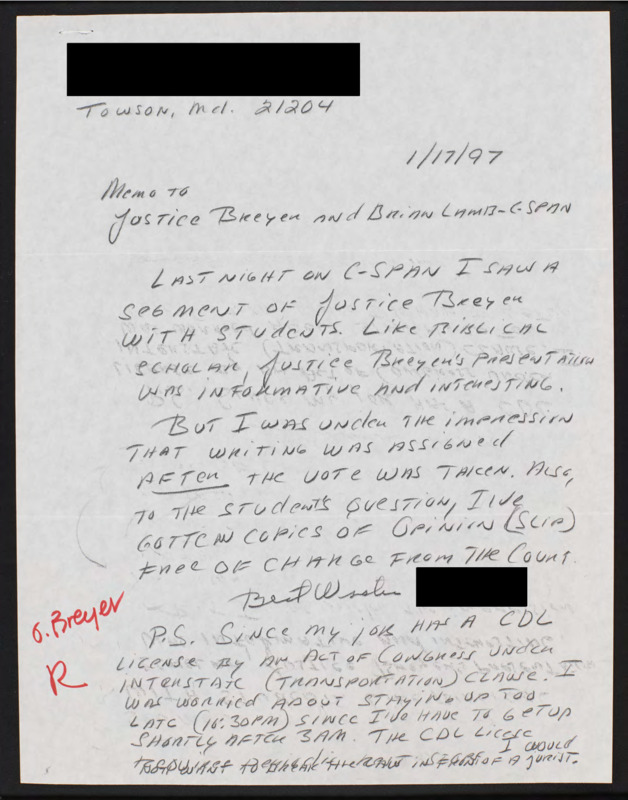 Towson, Md. 21204
1/17/97
Memo to
Justice Breyer and Brian Lamb-C-SPAN
Last night on C-SPAN I saw a
segment of Justice Breyer
with students. Like Biblical
scholar, Justice Breyer's presentation
was informative and interesting.
But I was under the impression
that writing was assigned
after the vote was taken. Also,
to the student's question, I've
gotten copies of Opinion (Slip)
free of charge from the Court.
Best Wishes
O. Breyer
R
P.S. Since my job has a CDL
license by an Act of Congress under
Interstate (Transportation) Clause. I
was worried about staying up too
late (10:30PM) since I'd have to get up
shortly after 3AM. The CDL License
I would
in front of a jurist.